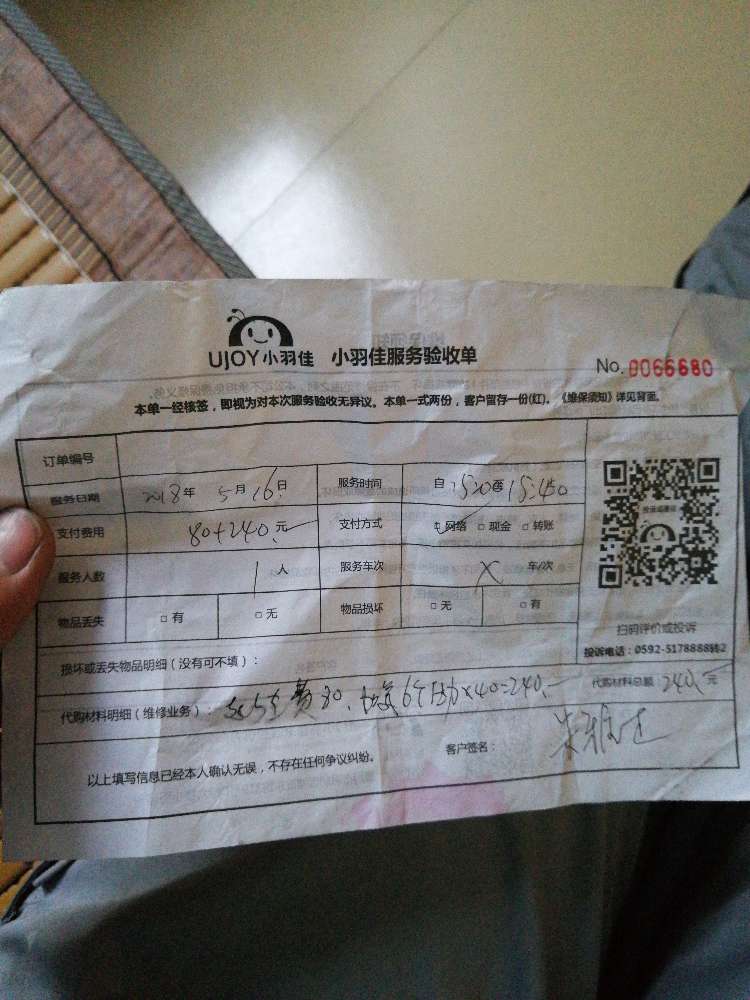 UJOY小羽佳 小羽佳服务验收单
No. 0066680
本单一经核签，即视为对本次服务验收无异议。本单一式两份，客户留存一份(红)。《维保须知》详见背面。
订单编号
服务日期 2018年 5月 16日 服务时间 自 15:20至 15:40
支付费用 80+240.元 支付方式 网络 □ 现金 □ 转账
服务人数 1 人 服务车次 X 车/次
物品丢失 □ 有 □ 无 物品损坏 □ 无 □ 有
扫码评价或投诉
投诉电话：0592-5178888转2
损坏或丢失物品明细（没有可不填）：
代购材料明细（维修业务）： 费80、 6个 X40=240. 代购材料总额 240.元
以上填写信息已经本人确认无误，不存在任何争议纠纷。 客户签名：